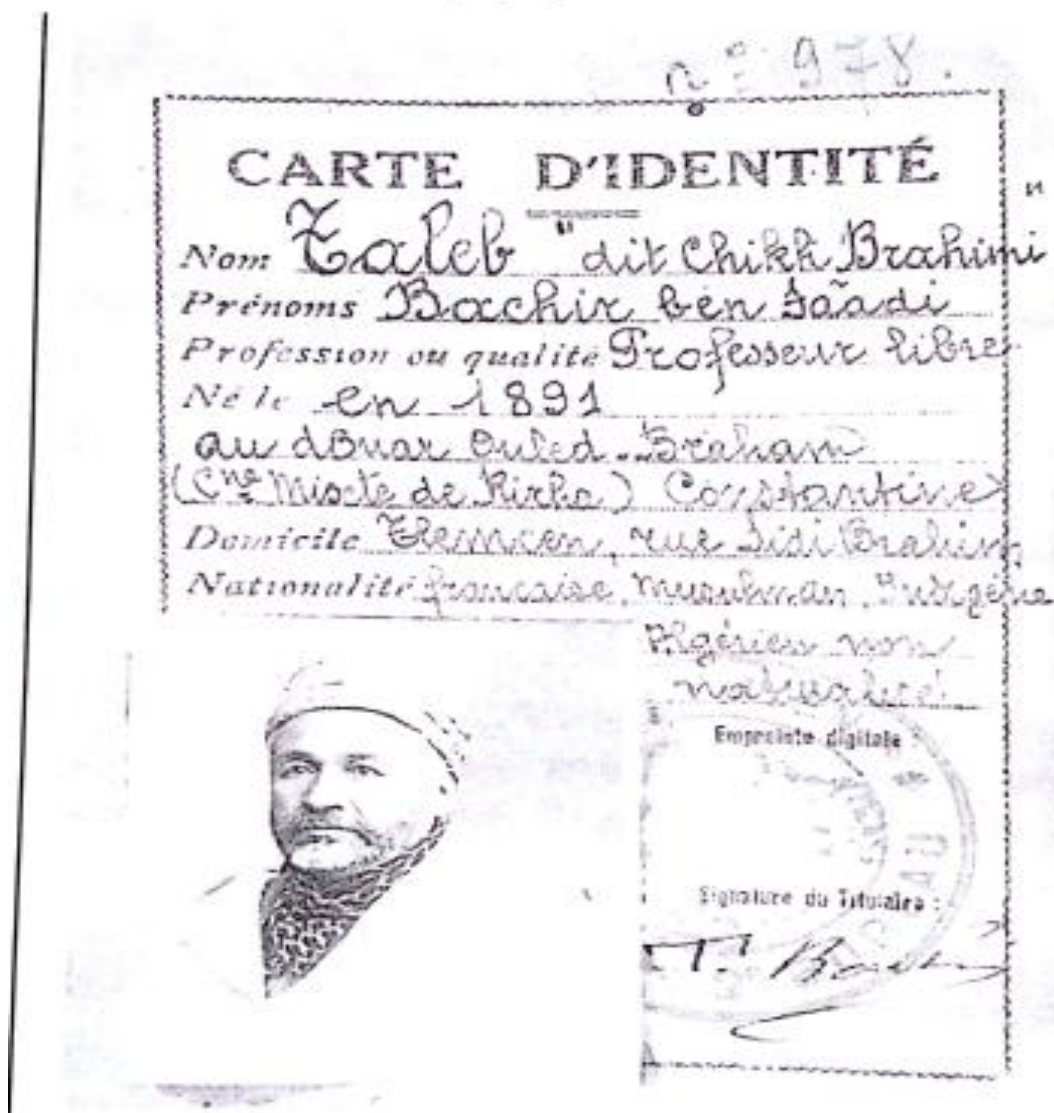 n° 978.
CARTE D'IDENTITÉ
Nom Taleb "dit Chikh Brahimi"
Prénoms Bachir ben Saâdi
Profession ou qualité Professeur libre
Né le en 1891
au douar Ouled Braham
(Cne Mixte de Rirha) Constantine
Domicile Tlemcen, rue Sidi Brahim
Nationalité française, Musulman, Indigène
Algérien non
naturalisé
Empreinte digitale :
Signature du Titulaire :
T. Bachir